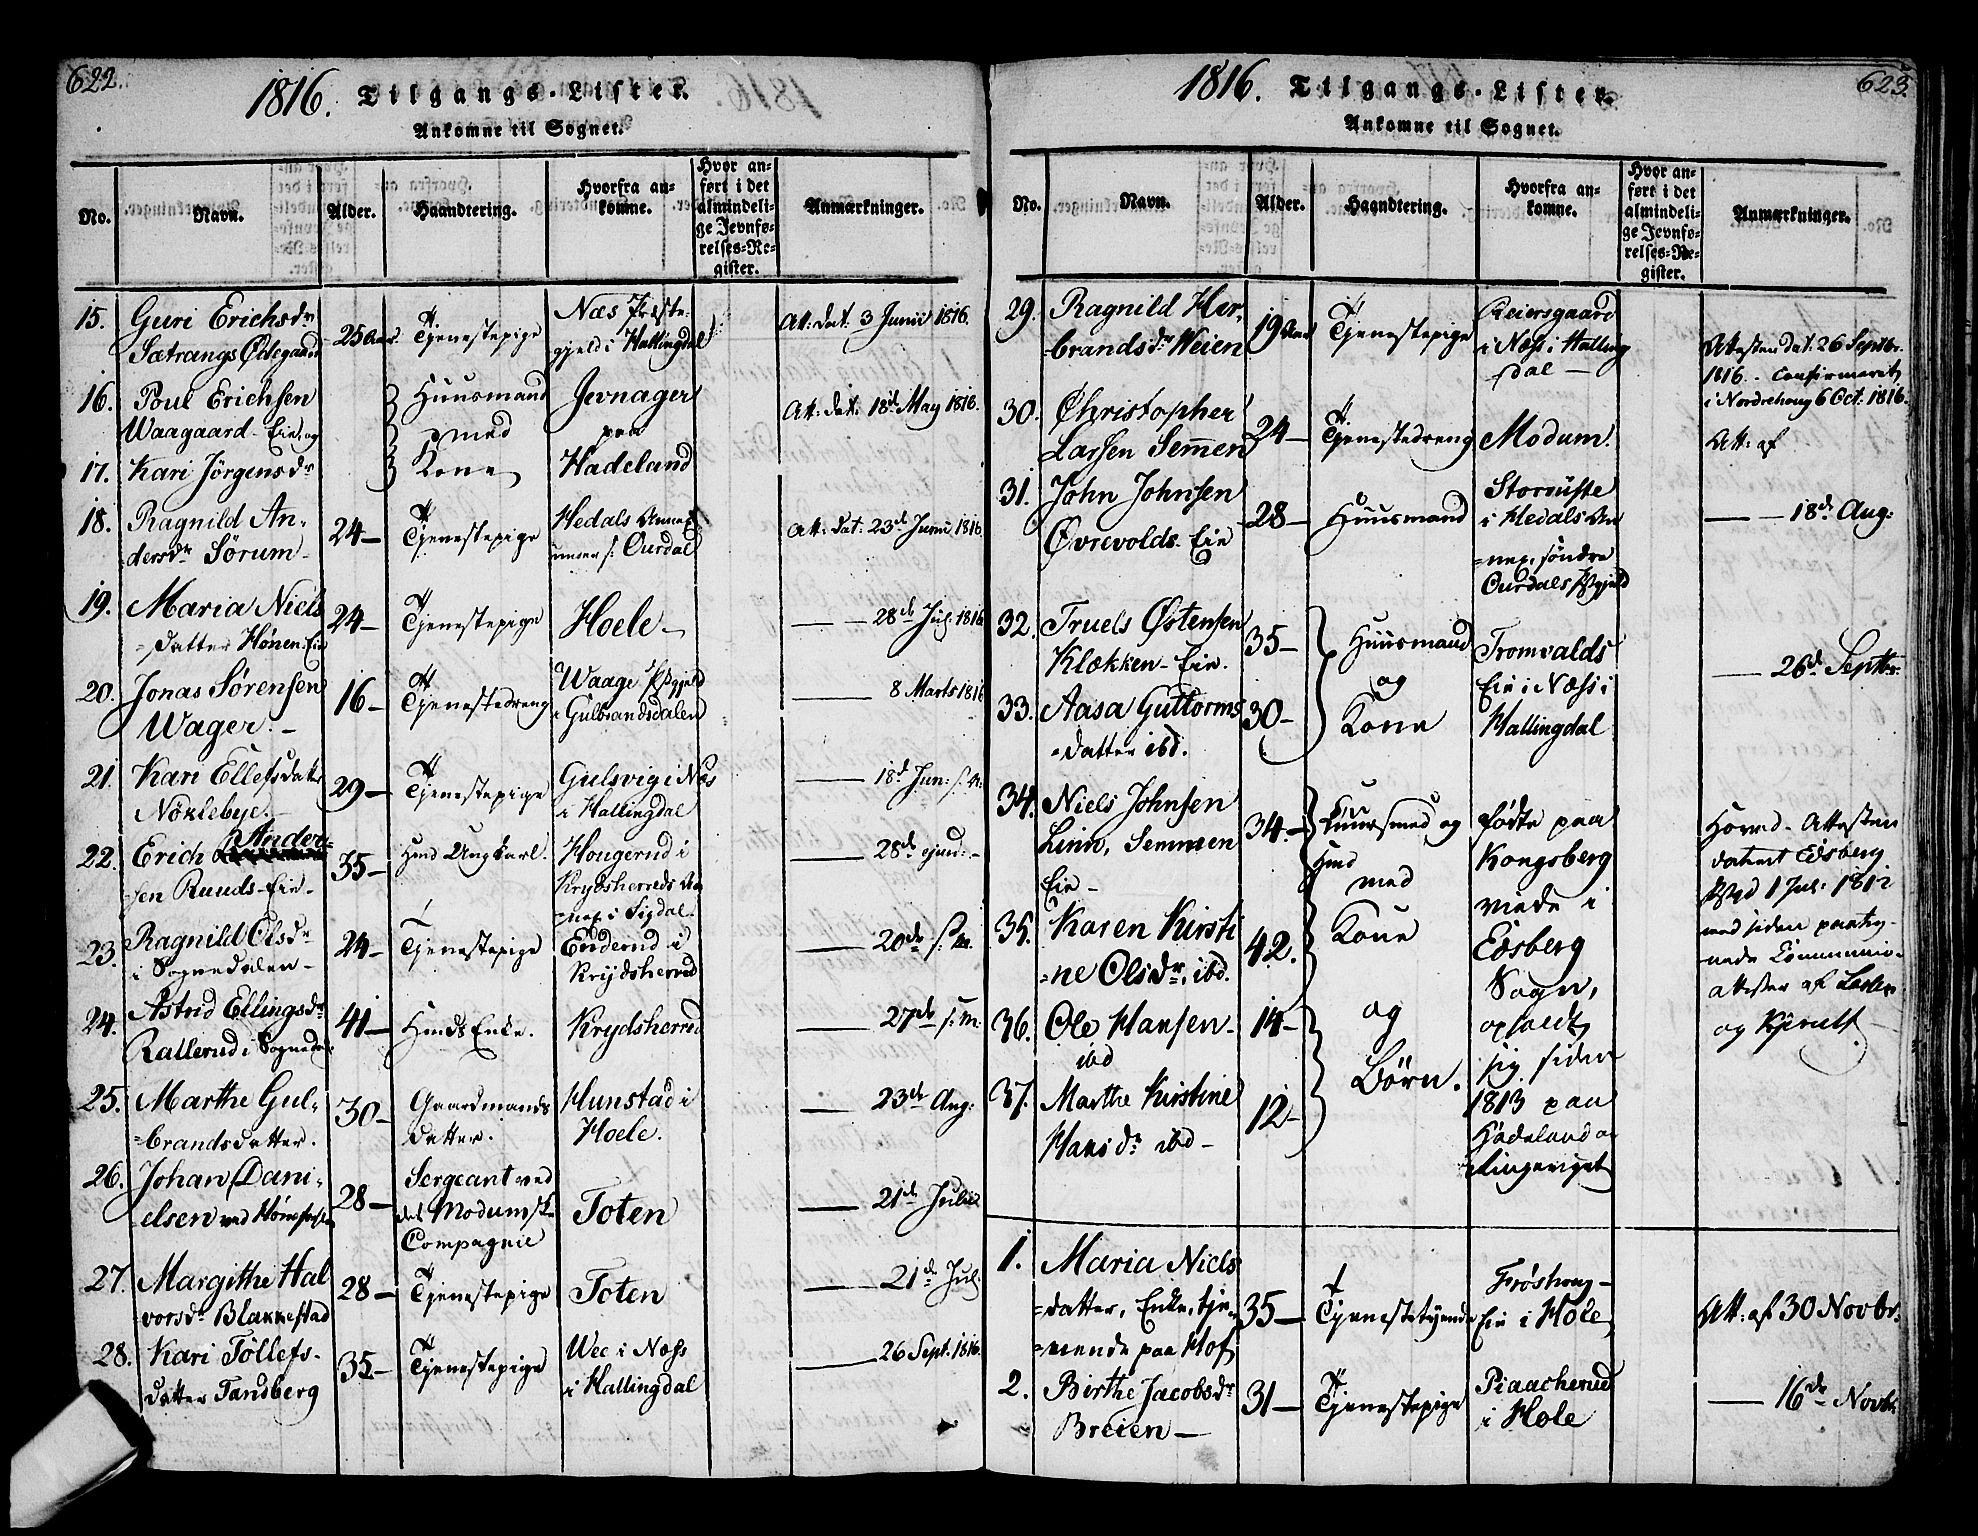 622.
1816. Tilgangs-Lister.
Ankomne til Sognet.
No.
Navn.
Alder.
Haandtering.
Hvorfra an-
komne.
Hvor an-
ført i det
almindeli-
ge Jevnfø-
relses-Re-
gister.
Anmærkninger.
15. Guri Erichsdr
Sætrangs Ødegaard
25 Aar
Tjenestepige
Næs Præste-
gjeld i Hallingdal
Att: dat. 3 Junii 1816.
16. Poul Erichsen
Waagaard-Eie, og
17. Kari Jörgensdr
Huusmand
med
Kone
Jevnager
paa
Hadeland
Att: dat. 18d May 1816.
18. Ragnild An-
dersdr Sörum-
24-
Tjenestepige
Hedals Annex
under s: Ourdal
Att: dat. 23d Junii 1816
19. Maria Niels
=datter Hönen-Eie
24-
Tjenestepige
Hoele-
28d Jul. 1816
20. Jonas Sørensen
Wager.-
16-
Tjenestedreng
Waage Pgjeld
i Gulbrandsdalen
8 Marts 1816
21. Kari Ellefsdatter
Nöklebye.-
29-
Tjenestepige
Gulsvig i Næs
i Hallingdal
18d Jun: s. A:
22. Erich Ander=
sen Ruuds-Eie-
35-
Hmd Ungkarl.
Hougerud i
Krydsherreds An
nex i Sigdal.
28d ejusd:-
23. Ragnild Olsdr
i Sognedalen-
24-
Tjenestepige
Enderud i
Krydsherred
20d s. M.
24. Astrid Ellingsdr
Rallerud i Sognedal.
41-
Hmds Enke.
Krydsherred
27d s. M.
25. Marthe Gul-
=brandsdatter.
30-
Gaardmands
datter.
Hunstad i
Hoele.
23d Aug:
26. Johan Dani-
elsen ved Hönefossen
28-
Sergeant ved
det Modumske
Compagnie
Toten
21d Julii
27. Margithe Hal
vorsdr Blakkestad
28-
Tjenestepige
Toten
21d Jul.
28. Kari Töllefs-
datter Tandberg
35-
Tjenestepige
Wee i Næss
i Hallingdal
26 Sept. 1816.
623.
1816. Tilgangs-Lister.
Ankomne til Sognet.
No.
Navn.
Alder.
Haandtering.
Hvorfra an-
komne.
Hvor an-
ført i det
almindeli-
ge Jevnfø-
relses-Re-
gister.
Anmærkninger.
29. Ragnild Her-
-brandsdr Weien
19 Aar
Tjenestepige
Reiersgaard
i Næss i Halling
dal-
Attesten dat. 26 Septbr.
1816. Confirmeret
i Nordrehoug 6 Oct. 1816.
30. Christopher
Larsen Semmen
24-
Tjenestedreng
Modum.
Att: af
31. John Johnsen
Øvrevolds-Eie
28-
Huusmand
i Hedals An
=nex, söndre
Ourdals Pgjeld
18d Aug:
32. Truels Østensen
Klækken-Eie.
35-
33. Aasa Guttorms
=datter ibd.
30-
Huusmand
og
Kone
Tromvalds
Eie i Næss i
Hallingdal
26d Septbr.
34. Niels Johnsen
Linn, Semmen
Eie-
34-
Huusmed og
Hmd
med
35. Karen Kirsti
=ne Olsdr, ibd.
42.
Kone
36. Ole Hansen-
ibd
14-
og
37. Marthe Kirstine
Hansdr ibd-
12-
Börn.
födte paa
Kongsberg
viede i
Edsberg
Sogn,
opholdt
sig siden
1813 paa
Hadeland og
Ringeriget
Hoved-Attesten
dateret Edsberg
1 Jul. 1812
med siden paateg-
nede Communions-
attester af
og
1. Maria Niels
=datter, Enke, tje-
=nende paa Hof
35-
Tjenestetyende
Fröshoug-
Eie i Hole
Att: af 30 Novbr.
2. Birthe Jacobsdr
Breien-
31-
Tjenestepige
Piaacherud
i Hole
16d Novbr.